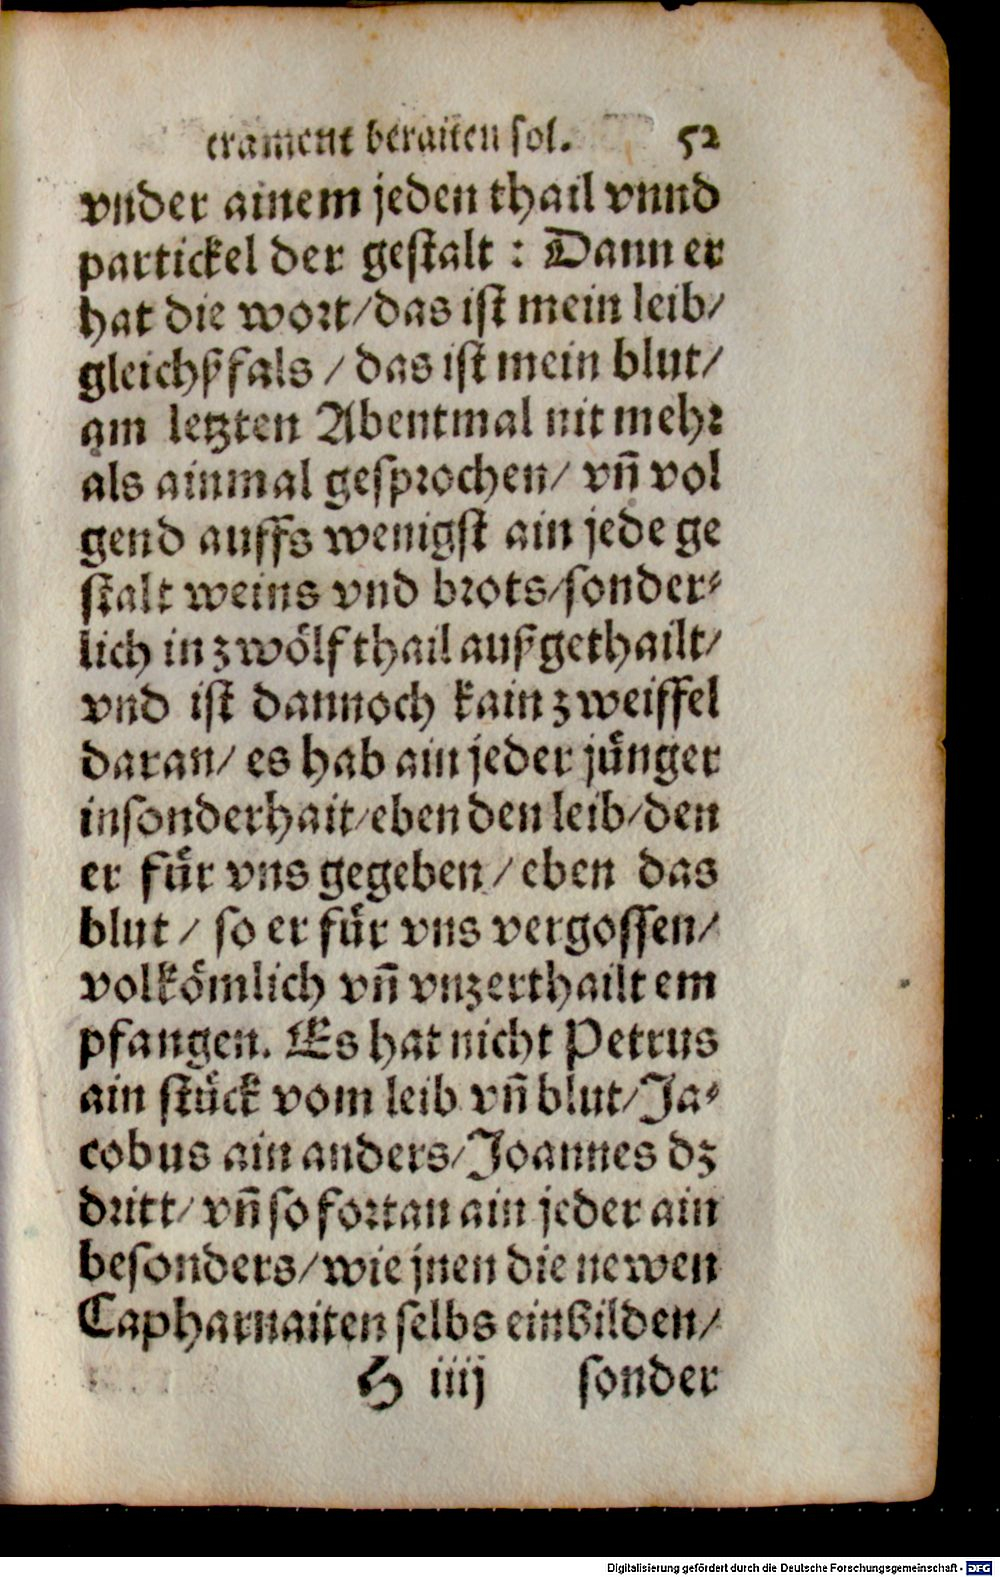 crament beraiten sol. 52
vnder ainem jeden thail vnnd
partickel der gestalt : Dann er
hat die wort/das ist mein leib/
gleichßfals / das ist mein blut/
am letzten Abentmal nit mehr
als ainmal gesprochen/ vñ vol
gend auffs wenigst ain jede ge
stalt weins vnd brots/sonder⸗
lich in zwölf thail außgethailt/
vnd ist dannoch kain zweiffel
daran/ es hab ain jeder jünger
insonderhait/eben den leib/den
er für vns gegeben / eben das
blut / so er für vns vergossen/
volkömlich vñ vnzerthailt em
pfangen. Es hat nicht Petrus
ain stück vom leib vñ blut/Ja⸗
cobus ain anders/Joannes dz
dritt/ vñ so fortan ain jeder ain
besonders/wie jnen die newen
Capharnaiten selbs einbilden/
H iiij sonder
Digitalisierung gefördert durch die Deutsche Forschungsgemeinschaft - DFG